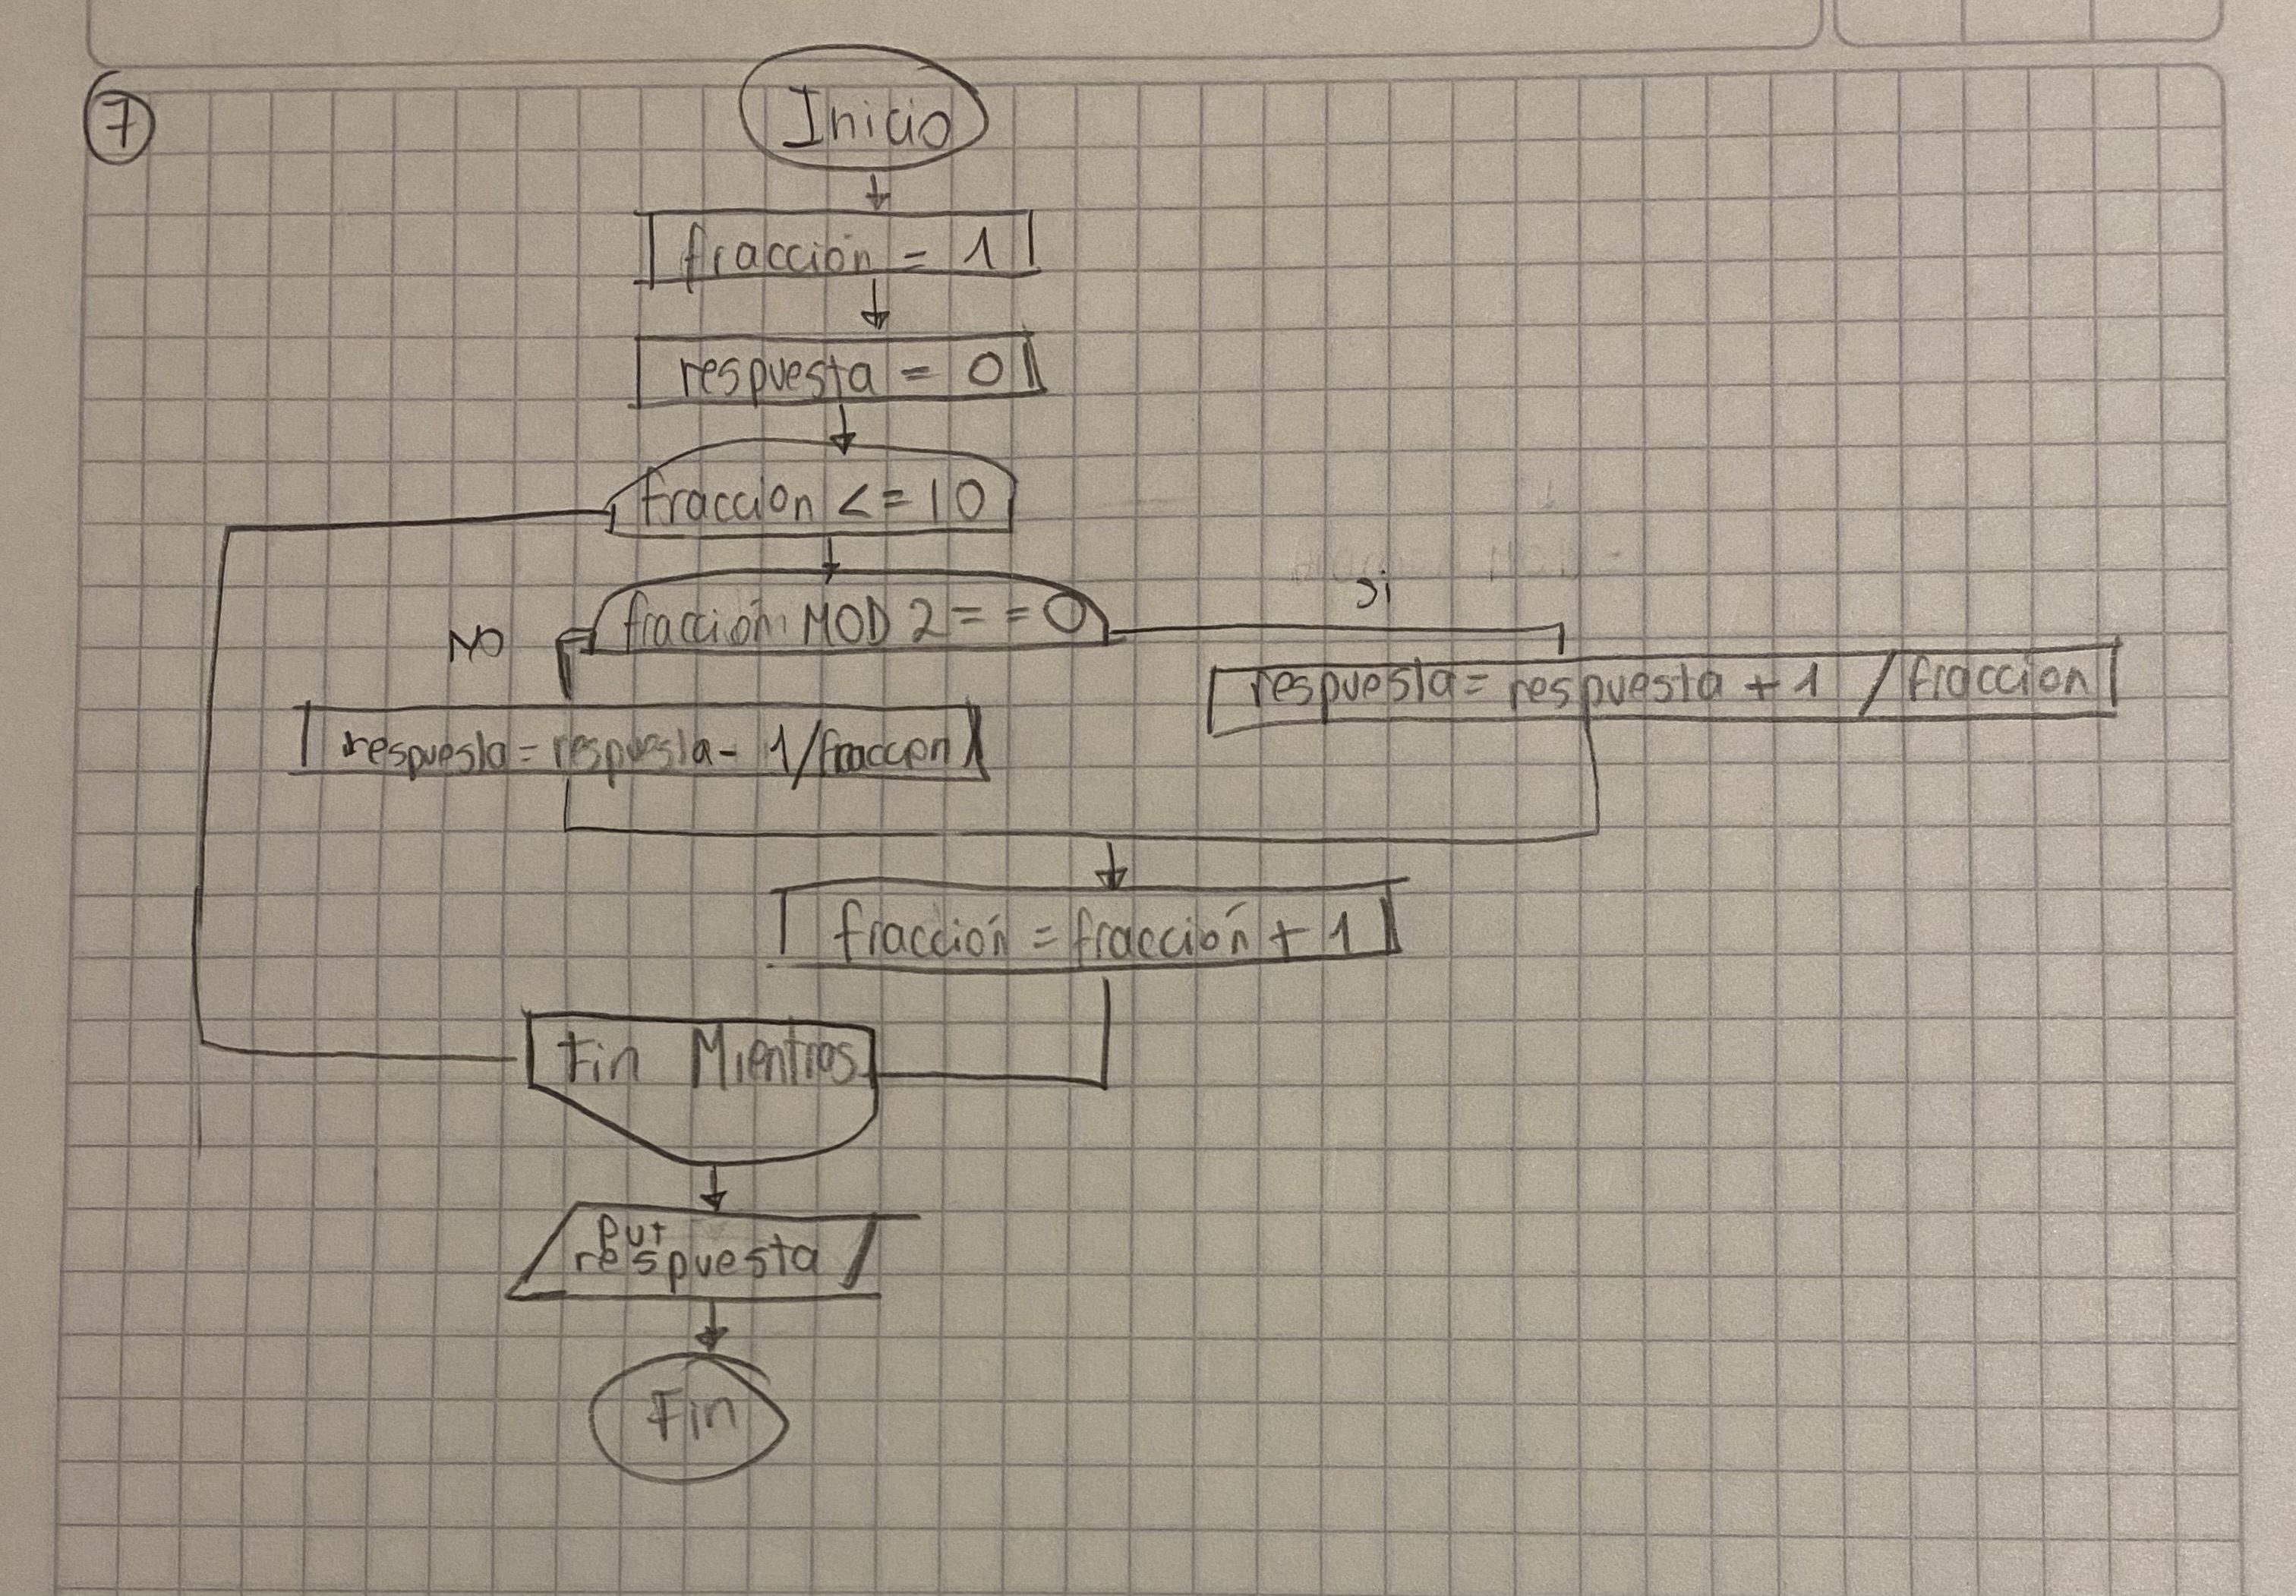 7
Inicio
fracción = 1
respuesta = 0
fraccion <= 10
fracción MOD 2 = = 0
Si
NO
respuesta = respuesta + 1 / fraccion
respuesta = respuesta - 1/fraccion
fracción = fracción + 1
Fin Mientras
put
respuesta
Fin